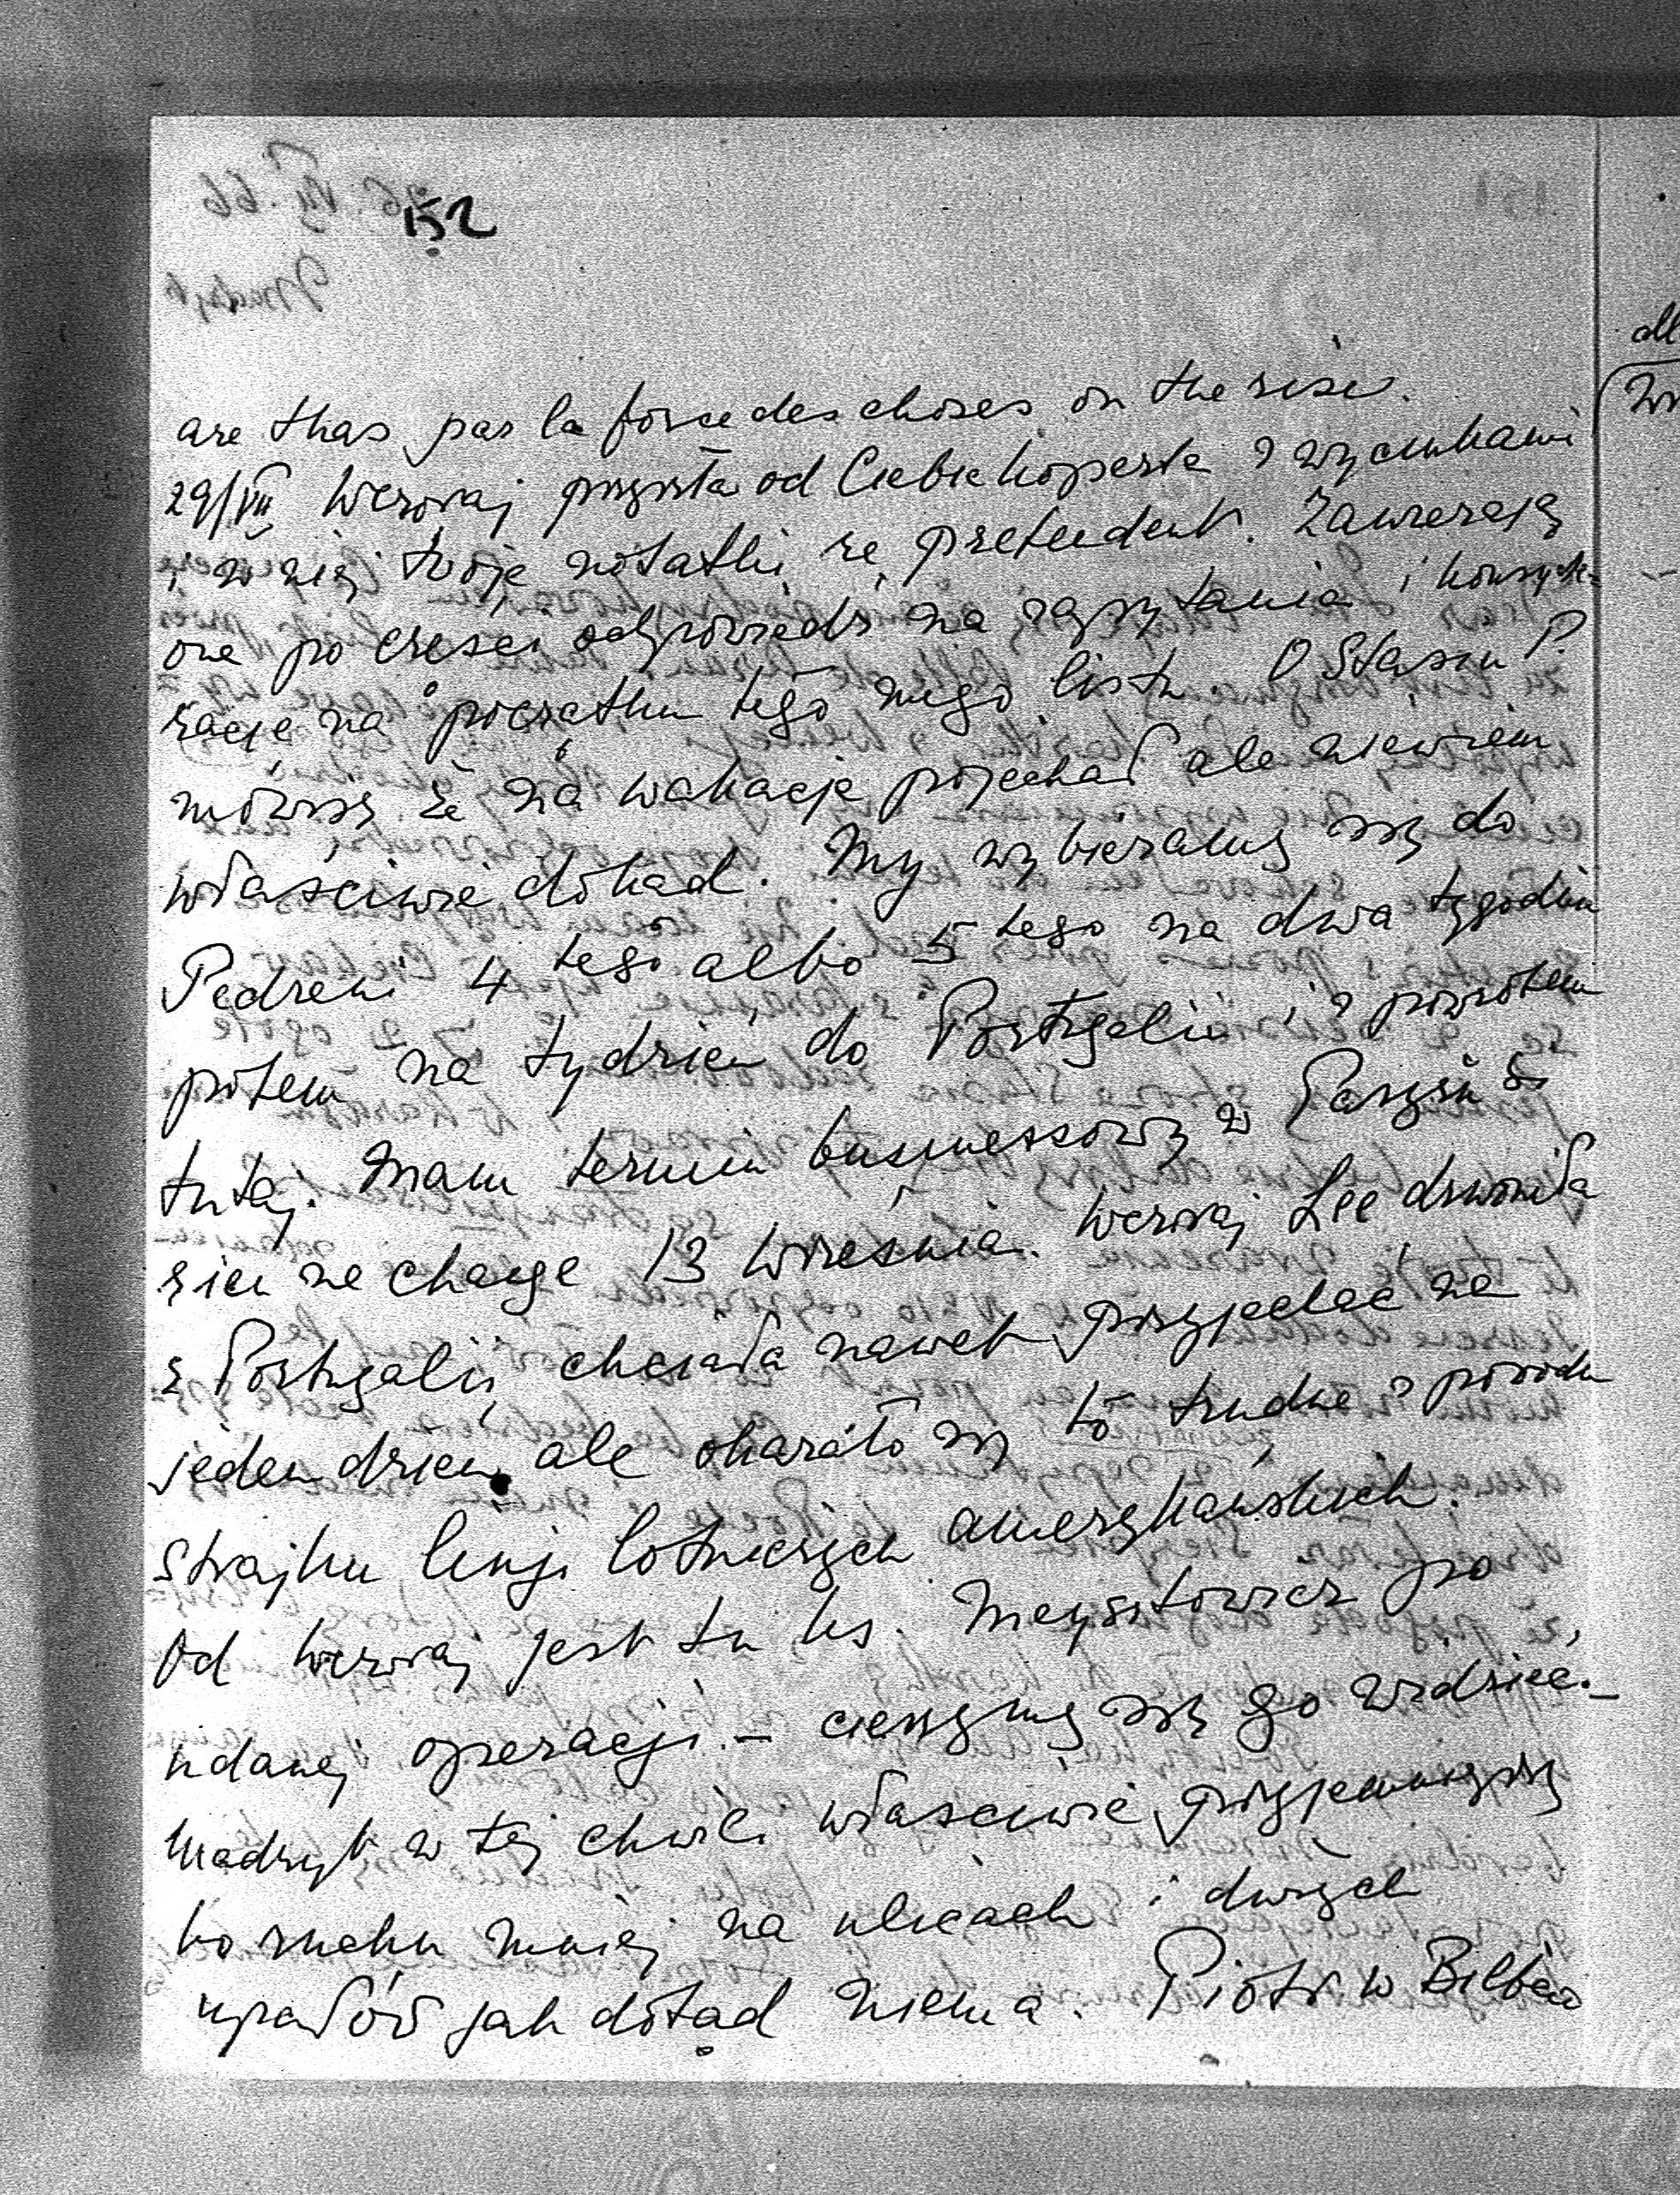 152
are thas par la force des choses on the rise.
29/VII Wczoraj przyszła od Ciebie koperta z wycinkami
i w niej twoje notatki re pretendent. Zawierają
one po części odpowiedź na zapytania i konsyde-
racje na początku tego mego listu. O Stasiu P.
mówią że na wakacje pojechał ale niewiem
właściwie dokąd. My wybieramy się do
Pedreni 4 tego albo 5 tego na dwa tygodnie
potem na tydzień do Portugalii i z powrotem
tutaj. Mam termin businessowy w Paryżu
13 września. Wczoraj Lee dzwoniła
z Portugalii, chciała nawet przyjechać na
jeden dzień, ale okazało się to trudne z powodu
strajku linji lotniczych amerykańskich.
Od wczoraj jest tu ks. Meysztowicz po
udanej operacji. – cieszymy się go widzieć. –
Madryt w tej chwili właściwie przyjemniejszy
bo ruchu mniej na ulicach i dużych
upałów jak dotąd niema. Piotr w Bilbao